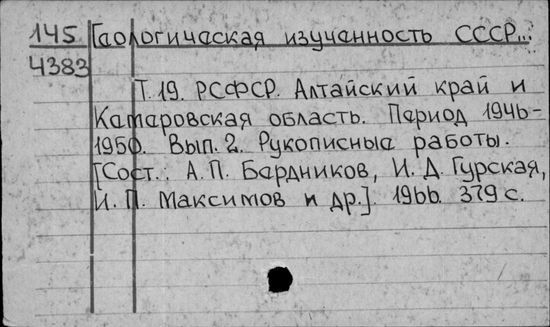 145 Геологическая изученность СССР...
4383
Т. 19. РСФСР. Алтайский край и
Кемеровская область. Период 1946-
1950. Вып. 2. Рукописные работы.
[Сост.: А. П. Бердников, И. Д. Гурская,
И. П. Максимов и др.]. 1966. 379 с.